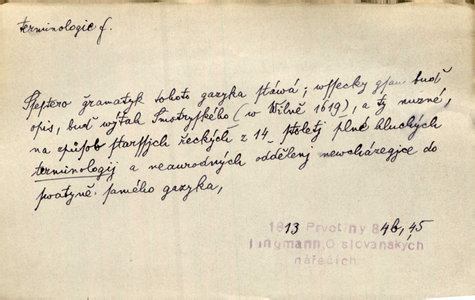 terminologie f.
Šestero gramatyk tohoto gazyka stáwá; wssecky gsau buď
opis, buď wýtah Smotryského (w Wilně 1619), a ty nuzné,
na způsob starssjch řeckých z 14. stoletj plné hluchých
terminologij a neaurodných oddělenj newcházegjce do
swatyně samého gazyka,
1813 Prvotiny 84b, 45
Jungmann, O slovanských
nářečích